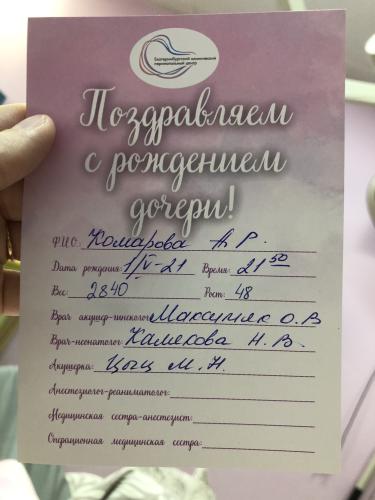 Екатеринбургский клинический
перинатальный центр
Поздравляем
с рождением
дочери!
Ф.И.О: Комарова А. Р.
Дата рождения: 1/V-21 Время: 21 50
Вес: 2840 Рост: 48
Врач акушер-гинеколог: Максимяк О. В
Врач-неонатолог: Камекова Н. В.
Акушерка: Цыц М. Н.
Анестезиолог-реаниматолог:
Медицинская сестра-анестезист:
Операционная медицинская сестра: